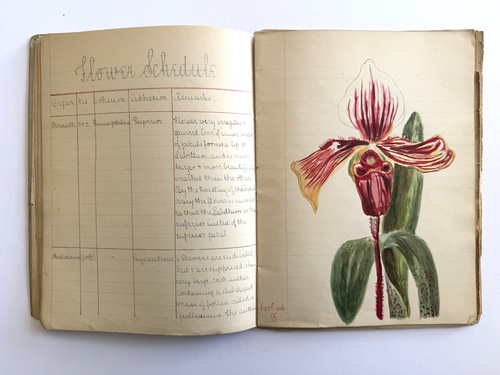 Flower Schedule
Organ No. Cohesion Adhesion Remarks
Perianth Gamopetalous Superior. Flower very irregular &
spurred. One of inner whorl
of petals forms a lip or
Labellum, and is much
larger & more beautifully
marked than the others.
By the twisting of the
ovary the flower is
so that the Labellum is the
inferior instead of the
superior petal.
Androecium Gynandrous 2 Stamens are indicated
but 2 are suppressed & have
very large each anther
containing a club shaped
mass of pollen called a
pollinium. The anther